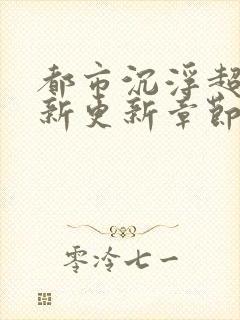 都市沉浮超
新更新章節
零泠七一